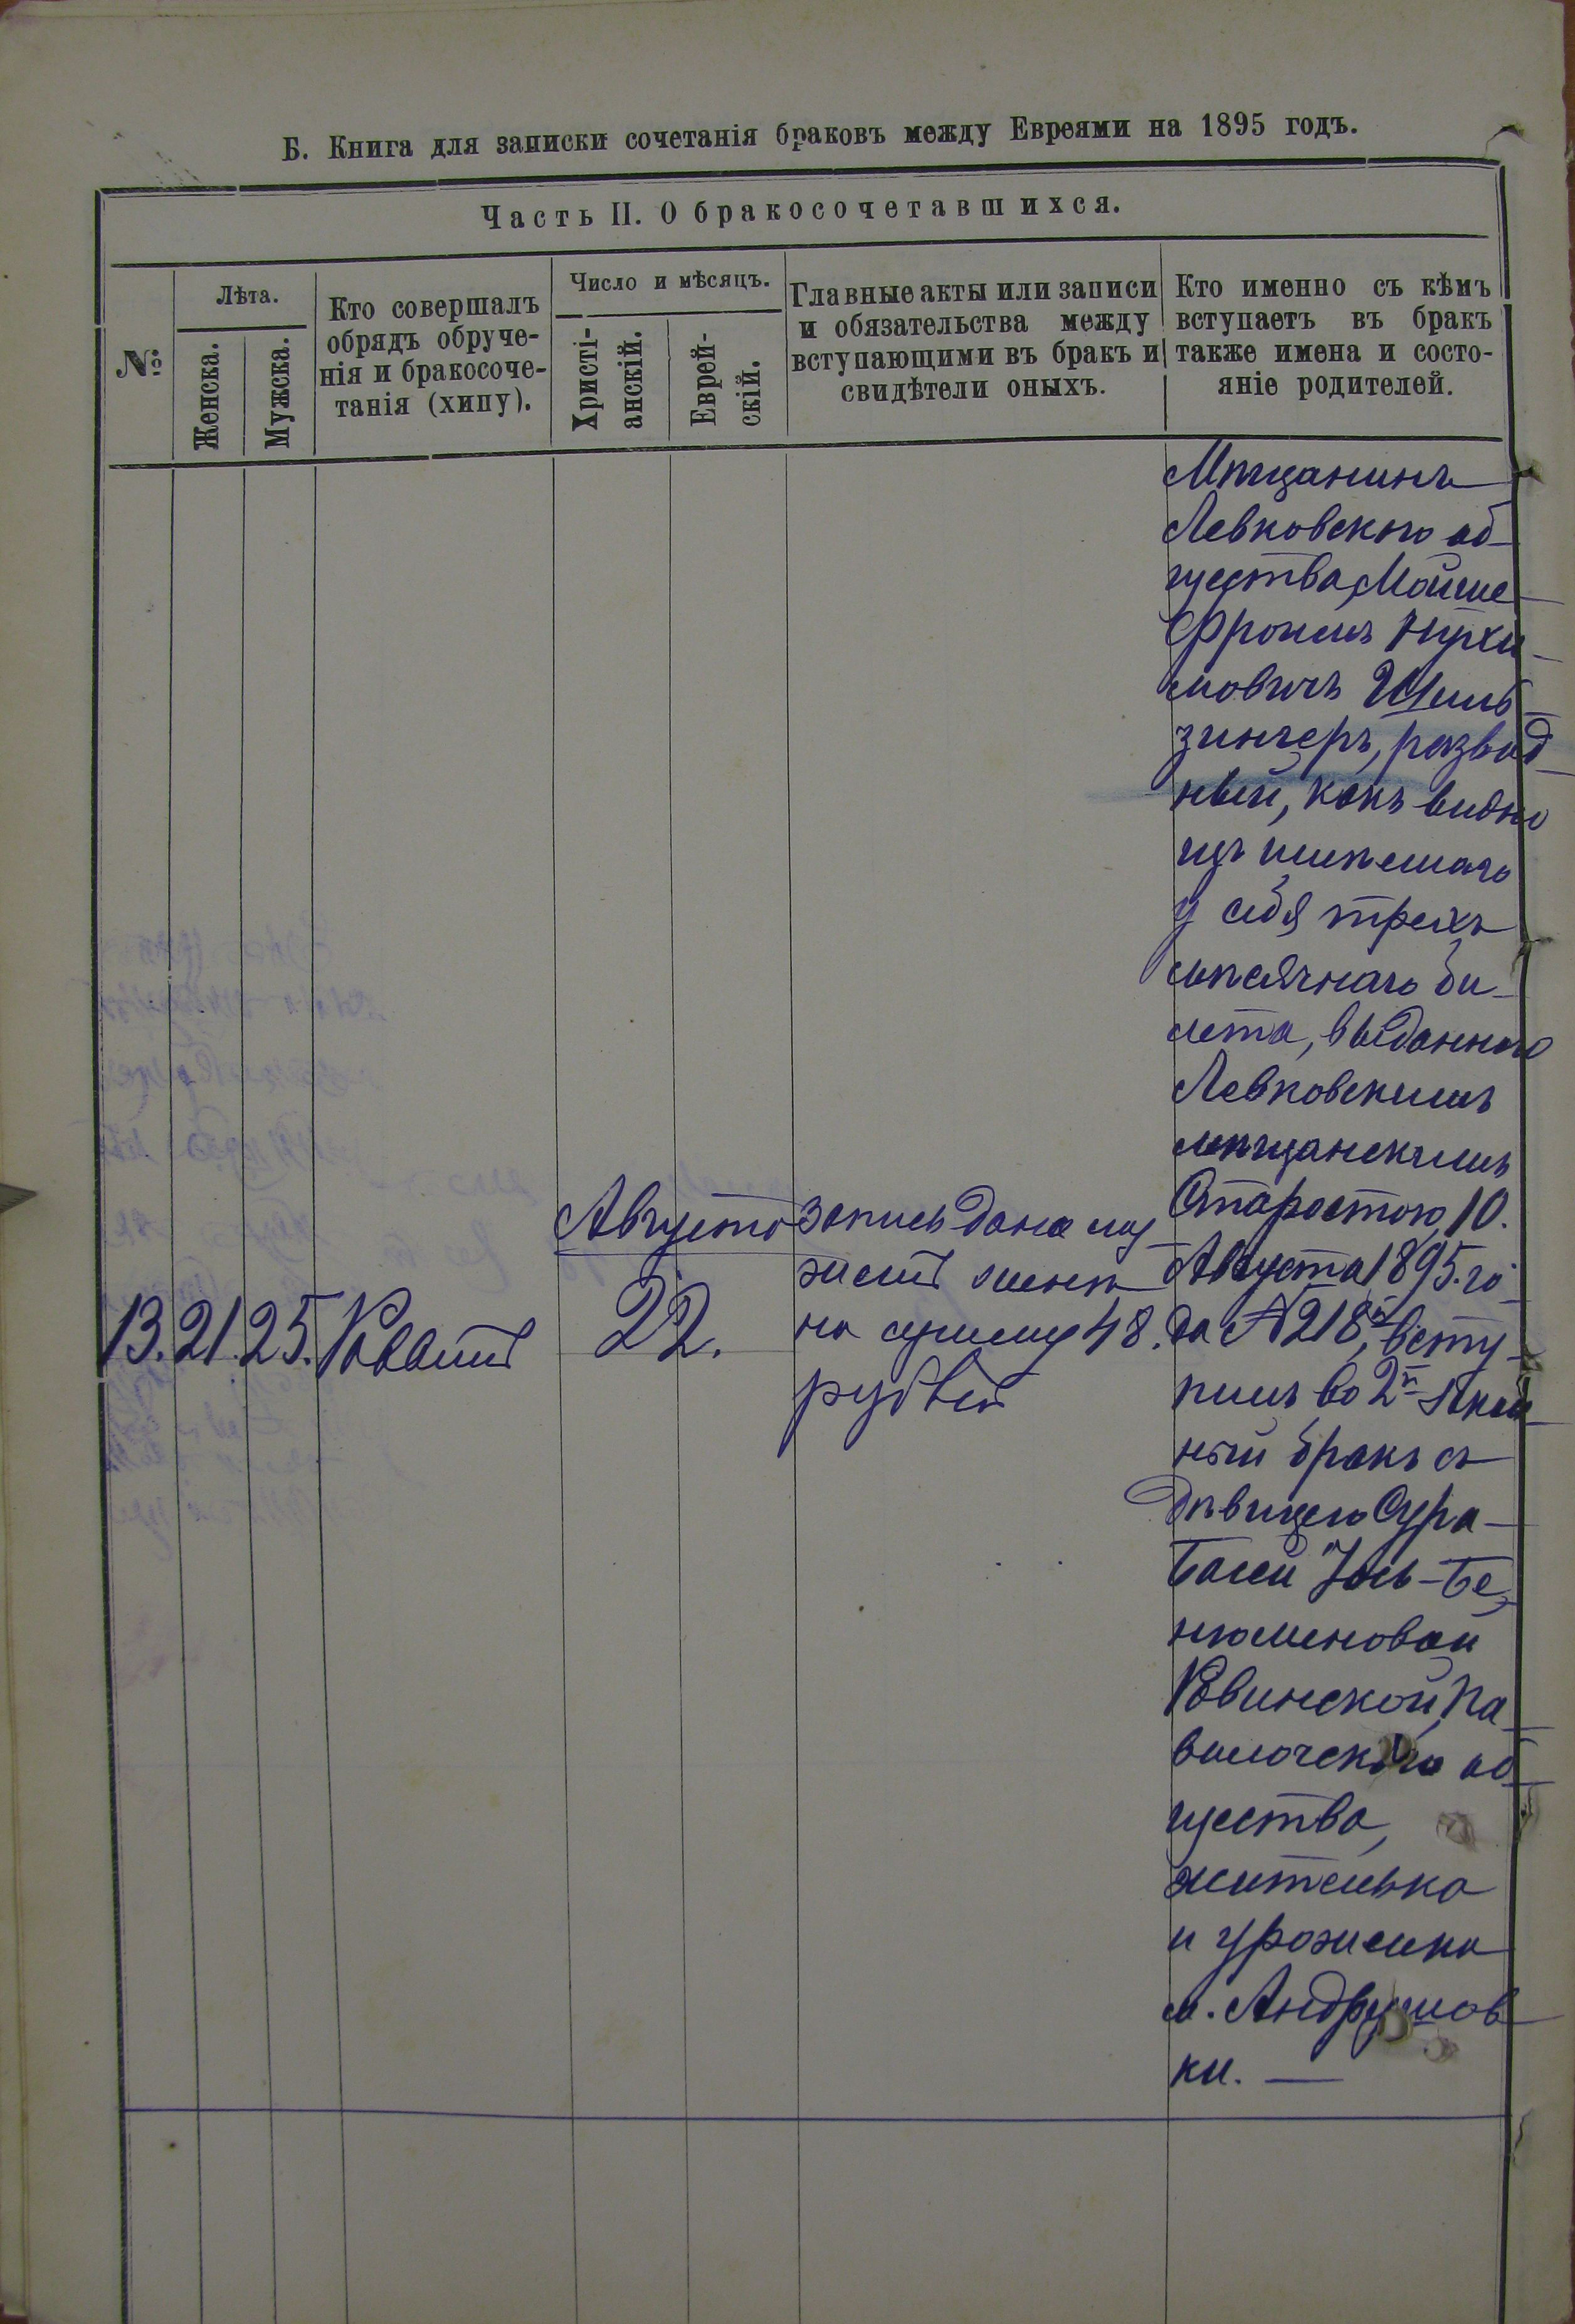 Б. Книга для записки сочетанія браковъ между Евреями на 1895 годъ.
Часть II. О бракосочетавшихся.
№
Лѣта.
Женска.
Мужска.
Кто совершалъ
обрядъ обруче-
нія и бракосоче-
танія (хипу).
Число и мѣсяцъ.
Христі-
анскій.
Еврей-
скій.
Главные акты или записи
и обязательства между
вступающими въ бракъ и
свидѣтели оныхъ.
Кто именно съ кѣмъ
вступаетъ въ бракъ
также имена и состо-
яніе родителей.
13. 21. 25. Раввинъ
Августа
22.
запись дана му
жемъ женѣ
на сумму 48.
рублей
Мѣщанинъ
Левковского об-
щества, Мойше
Фроимъ Нухи-
мовичъ Шинь
зингеръ, развод
ный, какъ видно
изъ имѣемаго
у себя трехъ
мѣсячнаго би-
лета, выданного
Левковскимъ
мѣщанскимъ
Старостою, 10.
Августа 1895. го-
да № 218, всту-
пилъ во 2й закон
ный бракъ съ
дѣвицею Сура-
Басей Іось-Бе
нюминовой
Ровинской, Па-
волочского об
щества,
жителька
и уроженка
м. Андрушов
ки. —